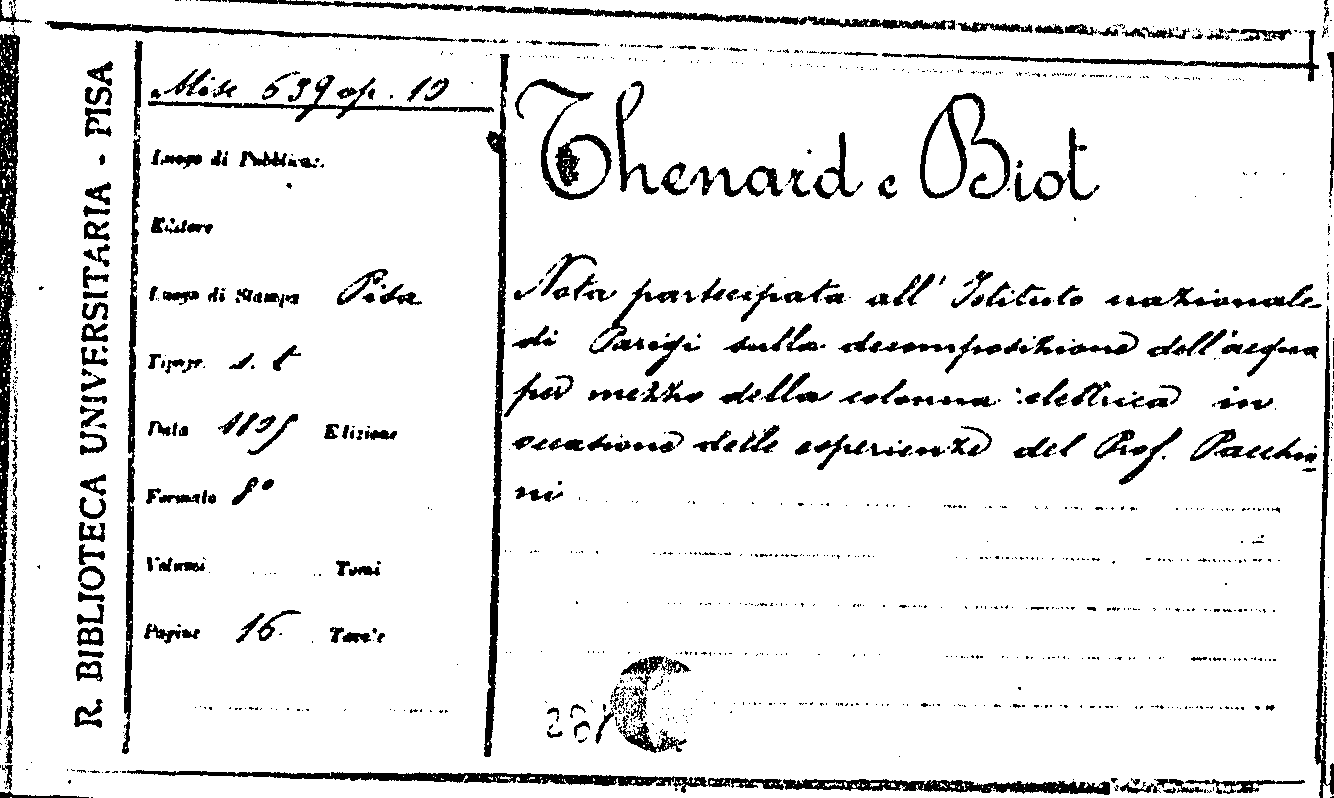 R. BIBLIOTECA UNIVERSITARIA - PISA
Misc 639 op. 10
Luogo di Pubblicaz.
Editore
Luogo di Stampa Pisa
Tipogr. s. t
Data 1805 Edizione
Formato 8°
Volumi Tomi
Pagine 16 Tavole
Thenard e Biot
Nota partecipata all' Istituto nazionale
di Parigi sulla decomposizione dell'acqua
per mezzo della colonna elettrica in
occasione delle esperienze del Prof. Pacchio
ni